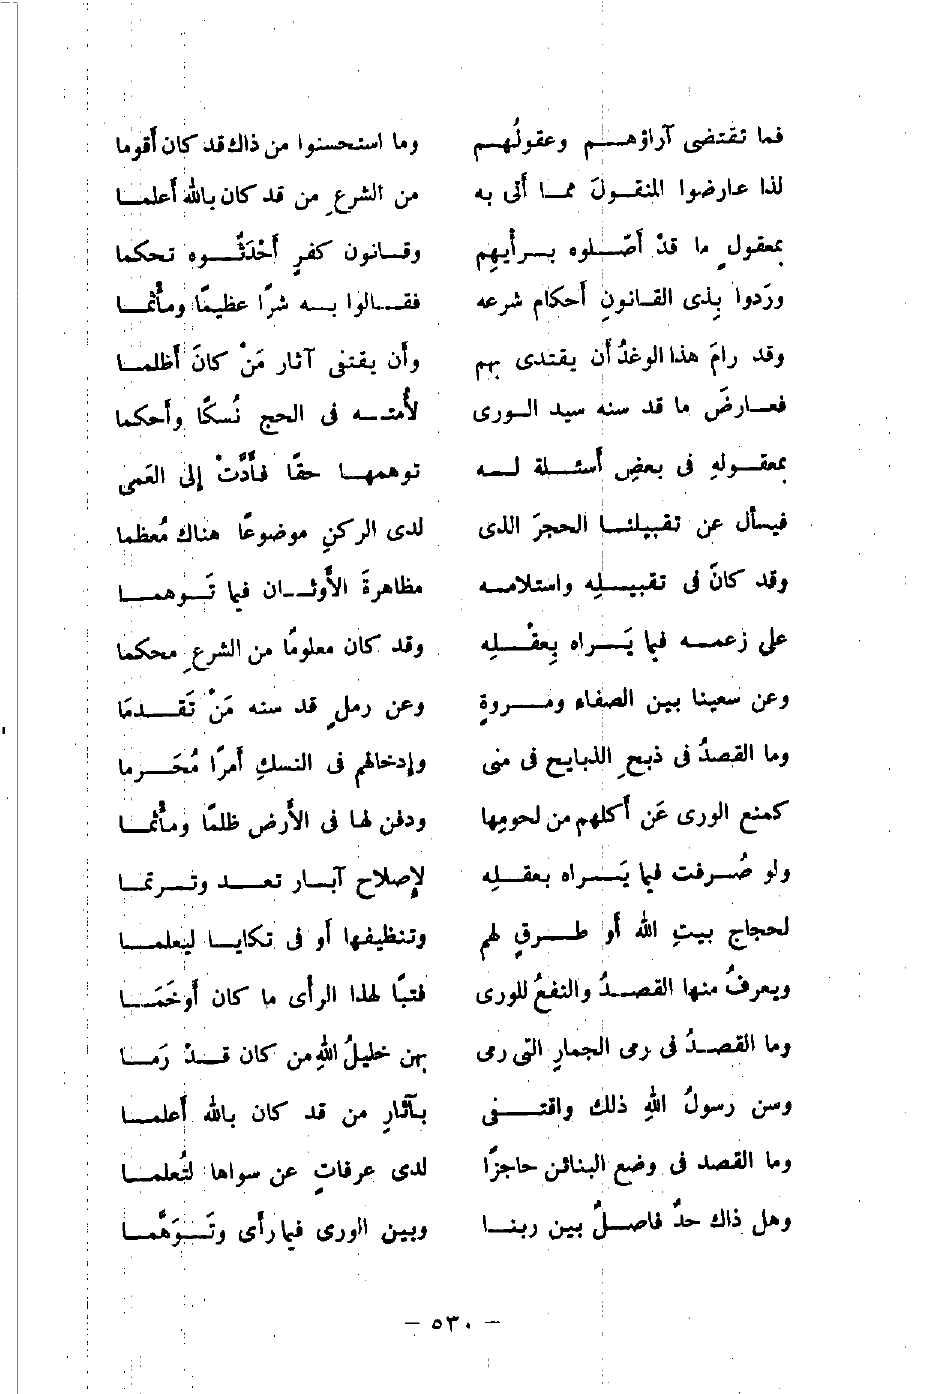 فما تقتضى آراؤهـــم وعقولُهـم وما استحسنوا من ذاك قد كان أقوما
لذا عارضوا المنقـولَ ممـا أتى به من الشرعِ من قد كان بالله أعلمـا
بمعقولٍ ما قدْ أصّـلوه بـرأيهِم وقـانون كفرٍ أحْدَثُـوه تحكما
وردوا بِذى القـانونِ أحكام شرعه فقـالوا بـه شرًا عظيمًا ومأْثمـا
وقد رامَ هذا الوغدُ أن يقتدى بهم وأن يقتفى آثار مَنْ كانَ أظلمـا
فعـارضَ ما قد سنه سيد الـورى لأُمتـه فى الحج نُسكًا وأحكما
بمعقـولهِ فى بعضِ أسئـلة لـه توهمهـا حقًا فأدَّتْ إلى العَمى
فيسأل عن تقبيلنـا الحجرَ الذى لدى الركنِ موضوعًا هناك مُعظما
وقد كانَ فى تقبيـلِه واستلامـه مظاهرةَ الأَوثـان فيما تَـوهمـا
على زعمـه فيما يَـراه بِعقْـلِه وقد كان معلومًا من الشرعِ محكما
وعن سعينا بين الصفاء ومـروةٍ وعن رملٍ قد سنه مَنْ تَقـدمَا
وما القصدُ فى ذبحِ الذبايح فى منى وإدخالهم فى النسكِ أمرًا مُحَـرما
كمنع الورى عَن أكلهم من لحومِها ودفن لها فى الأَرض ظلمًا ومأْثمـا
ولو صُـرفت فيما يَـراه بعقـلِه لإصلاح آبـار تعـد وتـرتمـا
لحجاج بيتِ الله أو طـرقٍ لهم وتنظيفها أو فى تكايـا ليعلمـا
ويعرفُ منها القصـدُ والنفعُ للورى فتبًا لهذا الرأى ما كان أوخَمَـا
وما القصدُ فى رمى الجمارِ التى رمى بهن خليلُ اللهِ من كان قـدْ رَمَـا
وسن رسولُ اللهِ ذلك واقتـفى بآثارِ من قد كان بالله أعلمـا
وما القصد فى وضع البنائن حاجزًا لدى عرفاتٍ عن سواها لتُعلمـا
وهل ذاك حدٌ فاصـلٌ بين ربنـا وبين الورى فيما رأى وتَـوَهَّمـا
– ٥٣٠ –